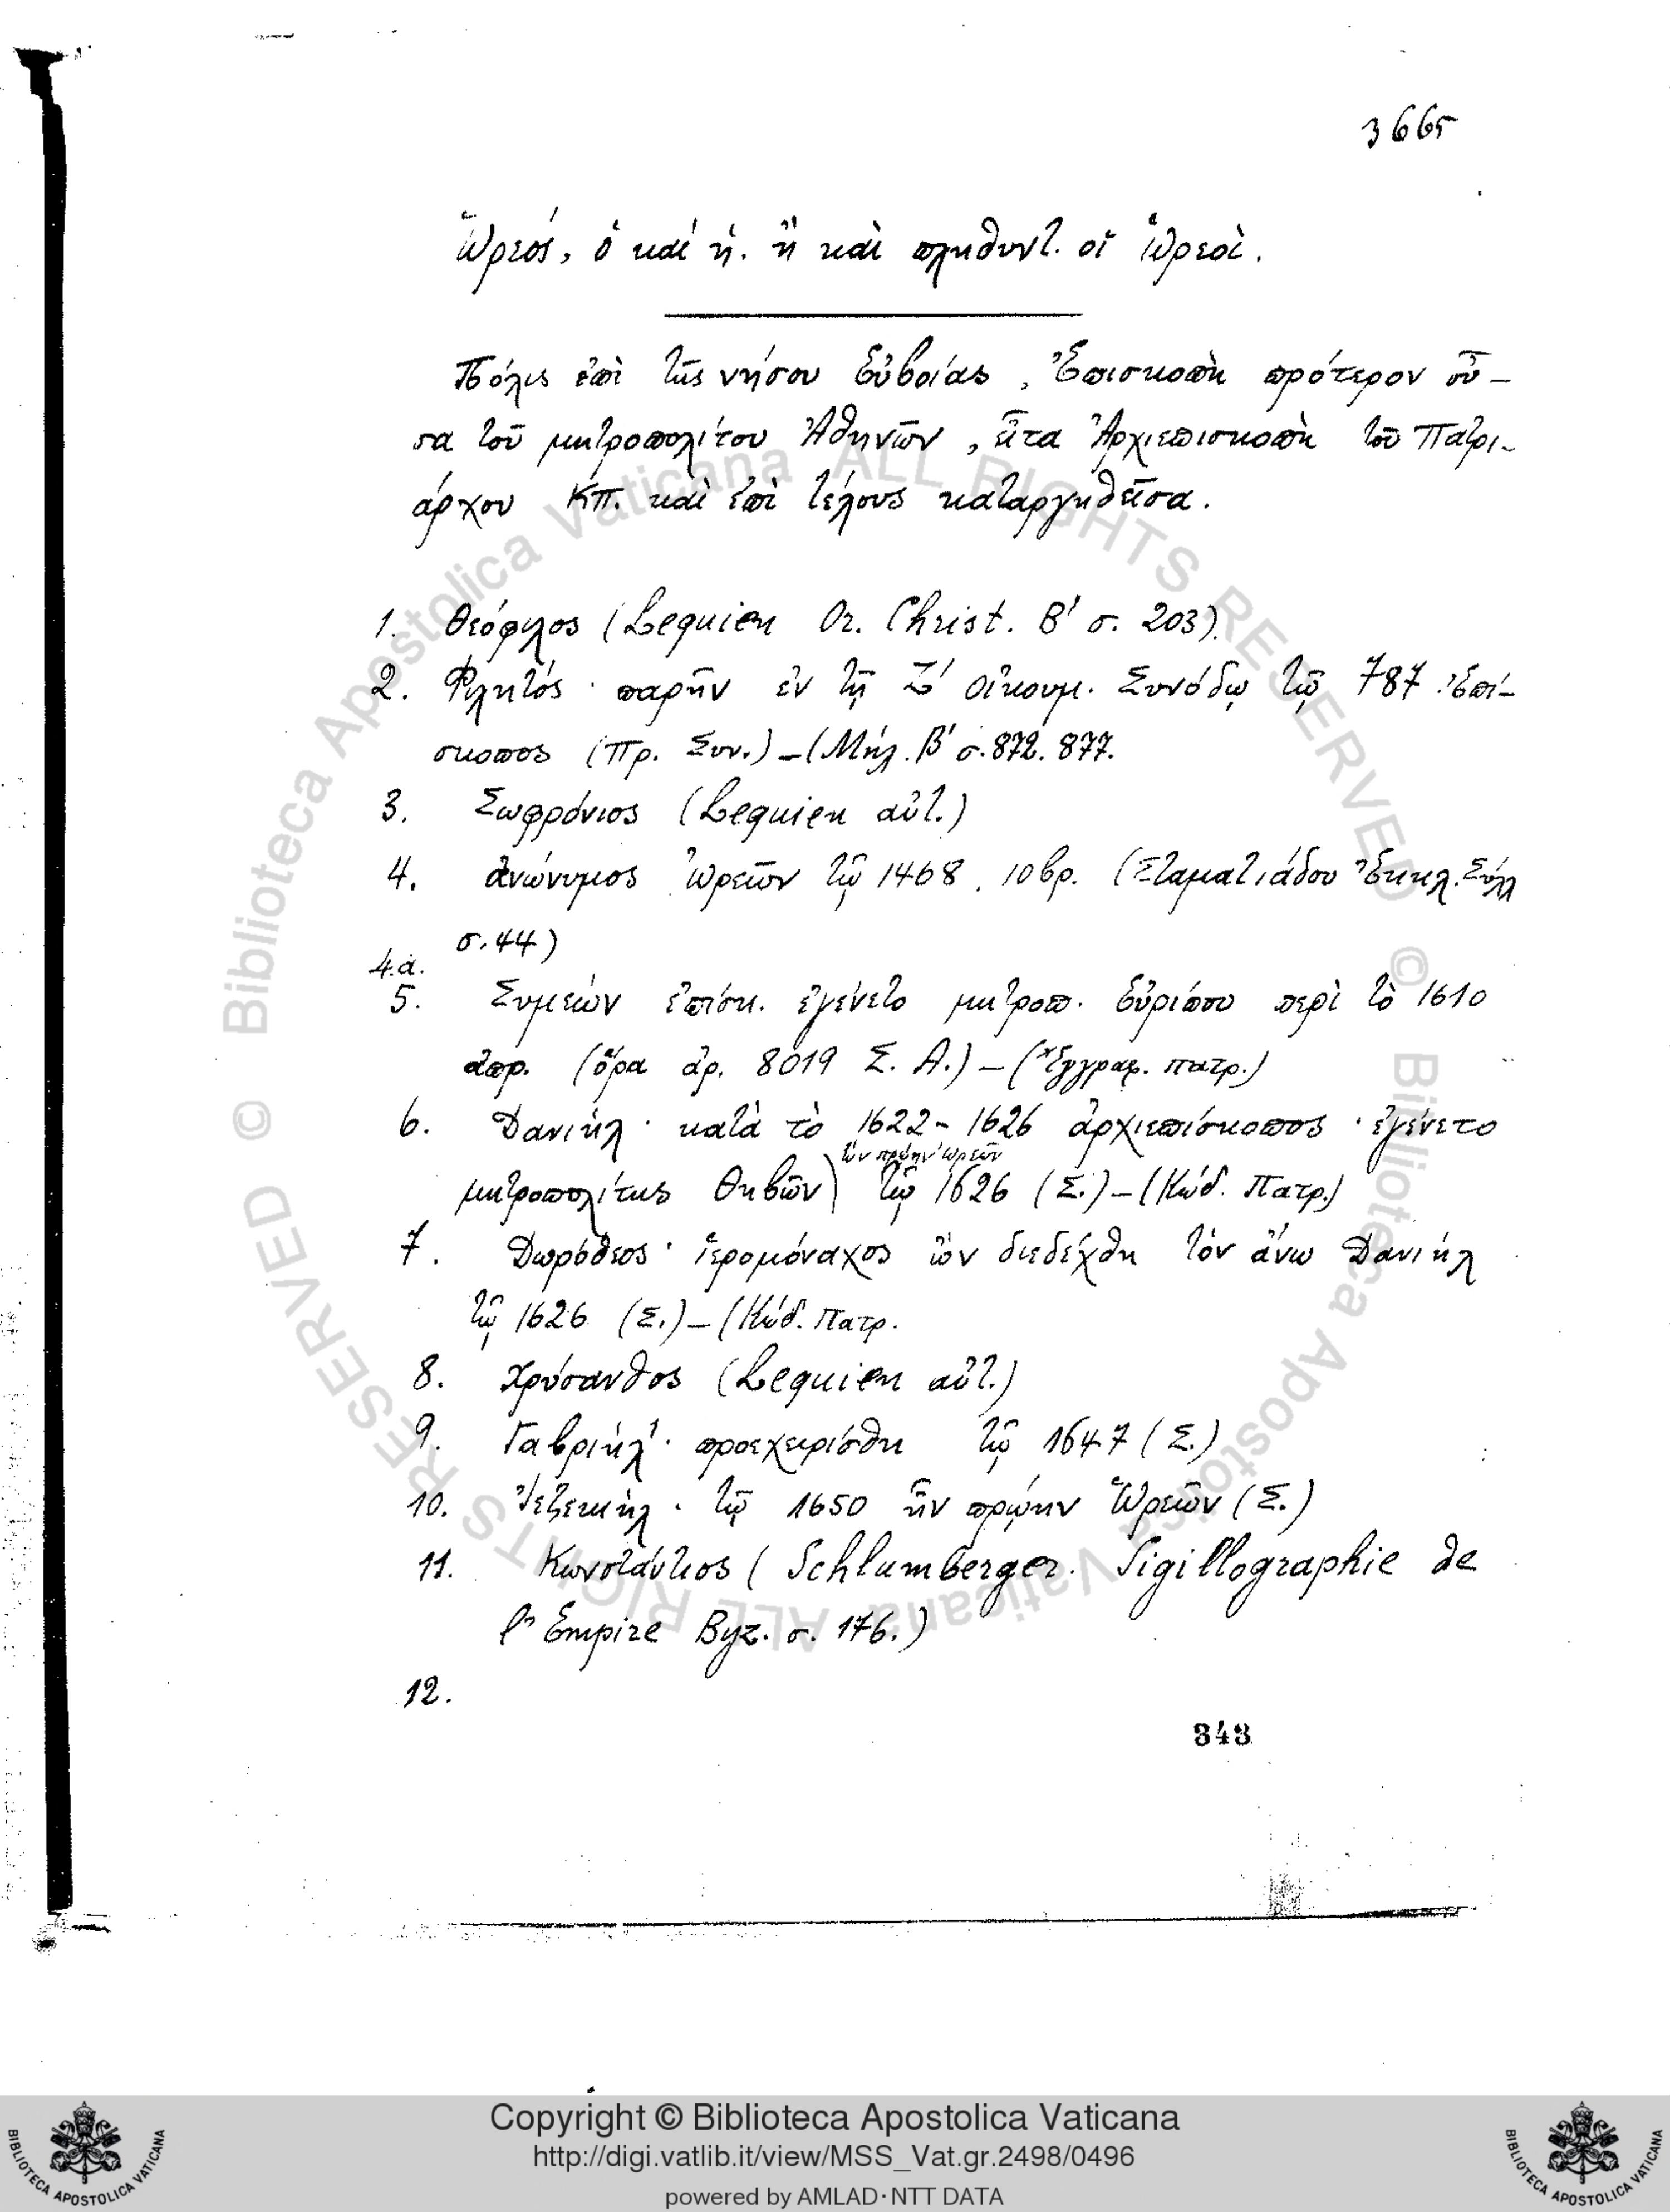 3665
Ὠρεός, ὁ καί ἡ. ἢ καὶ πληθυντ. οἱ Ὠρεοὶ.
Πόλις ἐπὶ τῆς νήσου Εὐβοίας, Ἐπισκοπὴ πρότερον οὖ-
σα τοῦ μητροπολίτου Ἀθηνῶν, εἶτα Ἀρχιεπισκοπὴ τοῦ Πατρι-
άρχου ΚΠ. καὶ ἐπὶ τέλους καταργηθεῖσα.
1. Θεόφιλος (Lequien Or. Christ. Β' σ. 203).
2. Φιλητός · παρῆν ἐν τῇ Ζ' Οἰκουμ. Συνόδῳ τῷ 787 Ἐπί-
σκοπος (Πρ. Συν.) – (Μήλ. Β' σ. 872. 877.
3. Σωφρόνιος (Lequien αὐτ.)
4. ἀνώνυμος Ὠρεῶν τῷ 1468. 10βρ. (Σταματιάδου Ἐκκλ. Σύλλ
σ. 44)
4.α.
5. Συμεών ἐπίσκ. ἐγένετο μητροπ. Εὐρίπου περὶ τὸ 1610
ἀπρ. (ὅρα ἀρ. 8019 Σ. Α.) – (Ἔγγραφ. Πατρ.)
6. Δανιήλ · κατὰ τὸ 1622 - 1626 ἀρχιεπίσκοπος · ἐγένετο
τὸν πρώην Ὠρεῶν
μητροπολίτης Θηβῶν) τῷ 1626 (Σ.) – (Κώδ. Πατρ.)
7. Δωρόθεος · ἱερομόναχος ὢν διεδέχθη τὸν ἄνω Δανιήλ
τῷ 1626 (Σ.) – (Κώδ. Πατρ.
8. Χρύσανθος (Lequien αὐτ.)
9. Γαβριήλ · προεχειρίσθη τῷ 1647 (Σ.)
10. Ἰεζεκιήλ · τῷ 1650 ἦν πρῴην Ὠρεῶν (Σ.)
11. Κωνστάντιος (Schlumberger. Sigillographie de
l' Empire Byz. σ. 176.)
12.
343
© Biblioteca Apostolica Vaticana ALL RIGHTS RESERVED © Biblioteca Apostolica Vaticana ALL RIGHTS RESERVED
Copyright © Biblioteca Apostolica Vaticana
http://digi.vatlib.it/view/MSS_Vat.gr.2498/0496
powered by AMLAD·NTT DATA
BIBLIOTECA APOSTOLICA VATICANA
BIBLIOTECA APOSTOLICA VATICANA